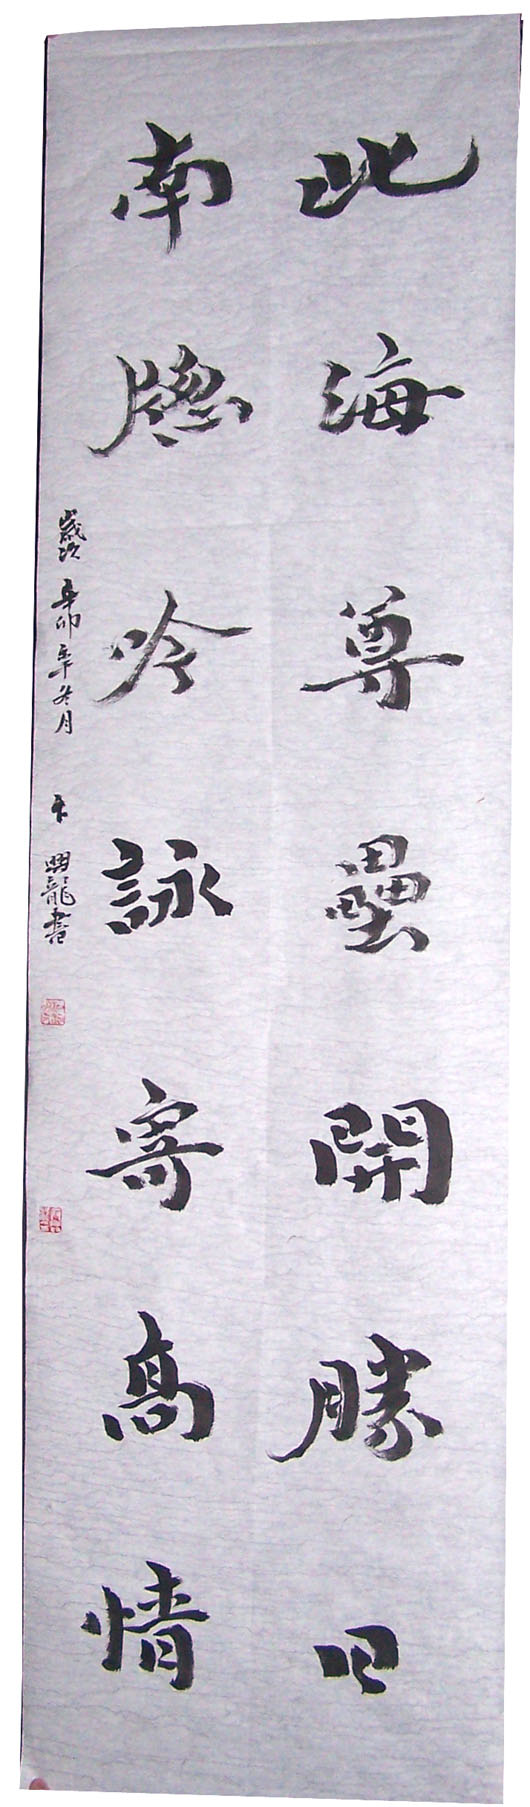 北海尊罍開勝日
南牕吟詠寄髙情
歲次辛卯年冬月 卞興龍書